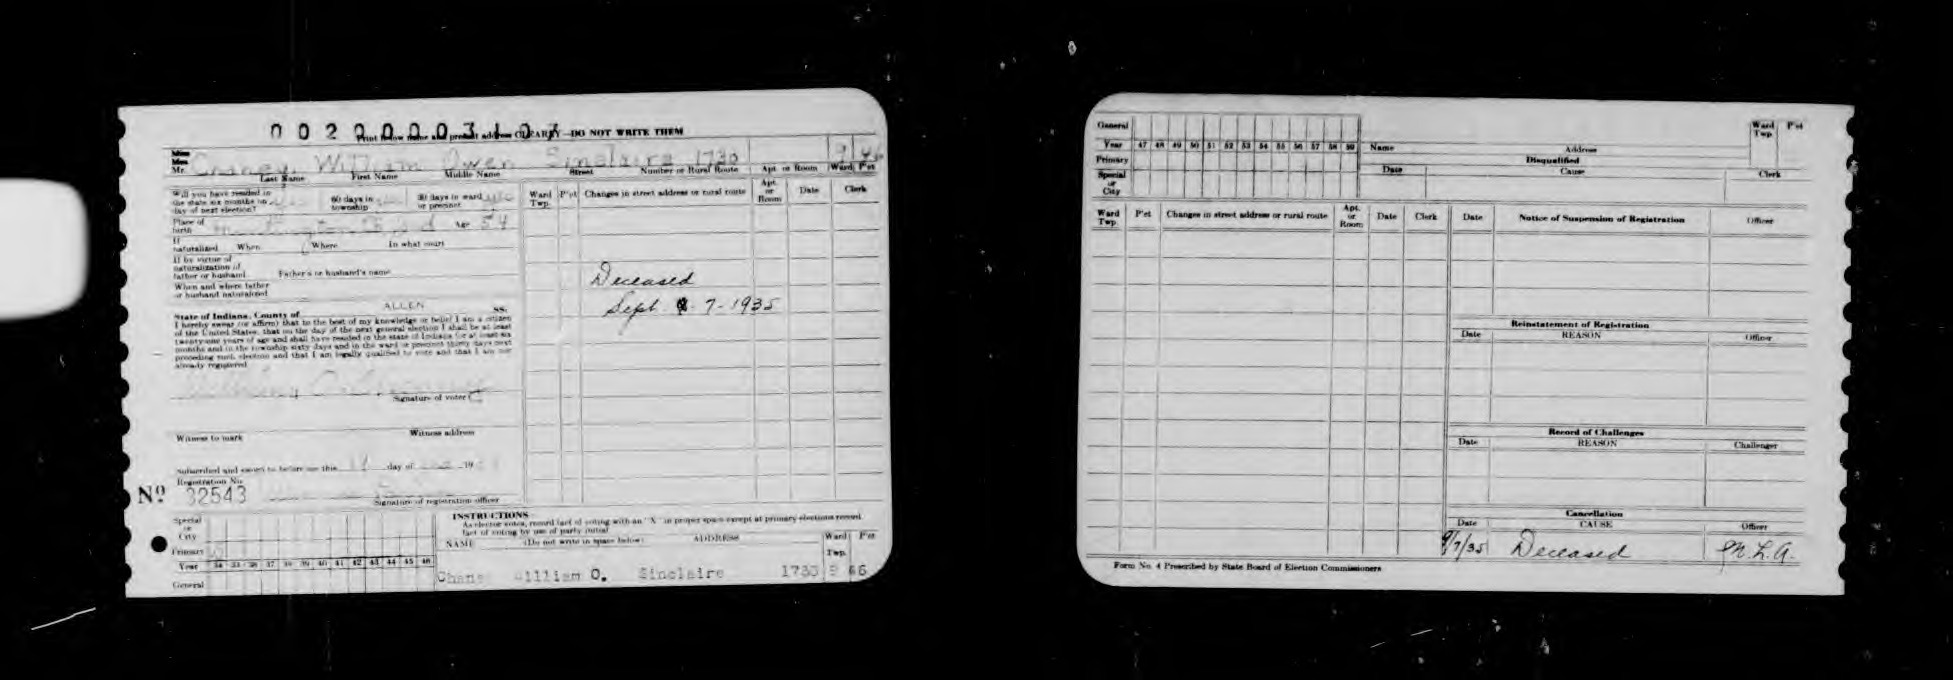 Print below name and present address CLEARLY—DO NOT WRITE THEM
Miss
Mrs.
Mr. William Owen Sinclaire 1730 9 46
Last Name First Name Middle Name Street Number or Rural Route Apt. or Room Ward P'ct
Will you have resided in the state six months on day of next election? 60 days in township 30 days in ward or precinct
Place of birth Huntington Age 54
If naturalized When Where In what court
If by virtue of naturalization of father or husband Father's or husband's name
When and where father or husband naturalized
State of Indiana, County of ALLEN ss.
I hereby swear (or affirm) that to the best of my knowledge or belief I am a citizen
of the United States, that on the day of the next general election I shall be at least
twenty-one years of age and shall have resided in the state of Indiana for at least six
months and in the township sixty days and in the ward or precinct thirty days next
preceding such election and that I am legally qualified to vote and that I am not
already registered
Signature of voter
Witness to mark Witness address
Subscribed and sworn to before me this day of 19
Registration No.
No 32543
Signature of registration officer
Ward Twp. P'ct Changes in street address or rural route Apt. or Room Date Clerk
Deceased
Sept. 7-1935
Special or City
Primary
Year 34 35 36 37 38 39 40 41 42 43 44 45 46
General
INSTRUCTIONS
As elector votes, record fact of voting with an "X" in proper space except at primary elections record
fact of voting by use of party initial
NAME (Do not write in space below) ADDRESS Ward Twp. P'ct
William O. Sinclaire 1730 9 46
General
Year 47 48 49 50 51 52 53 54 55 56 57 58 59
Primary
Special or City
Name Address Ward Twp. P'ct
Disqualified
Date Cause Clerk
Ward Twp. P'ct Changes in street address or rural route Apt. or Room Date Clerk
Date Notice of Suspension of Registration Officer
Reinstatement of Registration
Date REASON Officer
Record of Challenges
Date REASON Challenger
Cancellation
Date CAUSE Officer
9/7/35 Deceased M.L.A.
Form No. 4 Prescribed by State Board of Election Commissioners